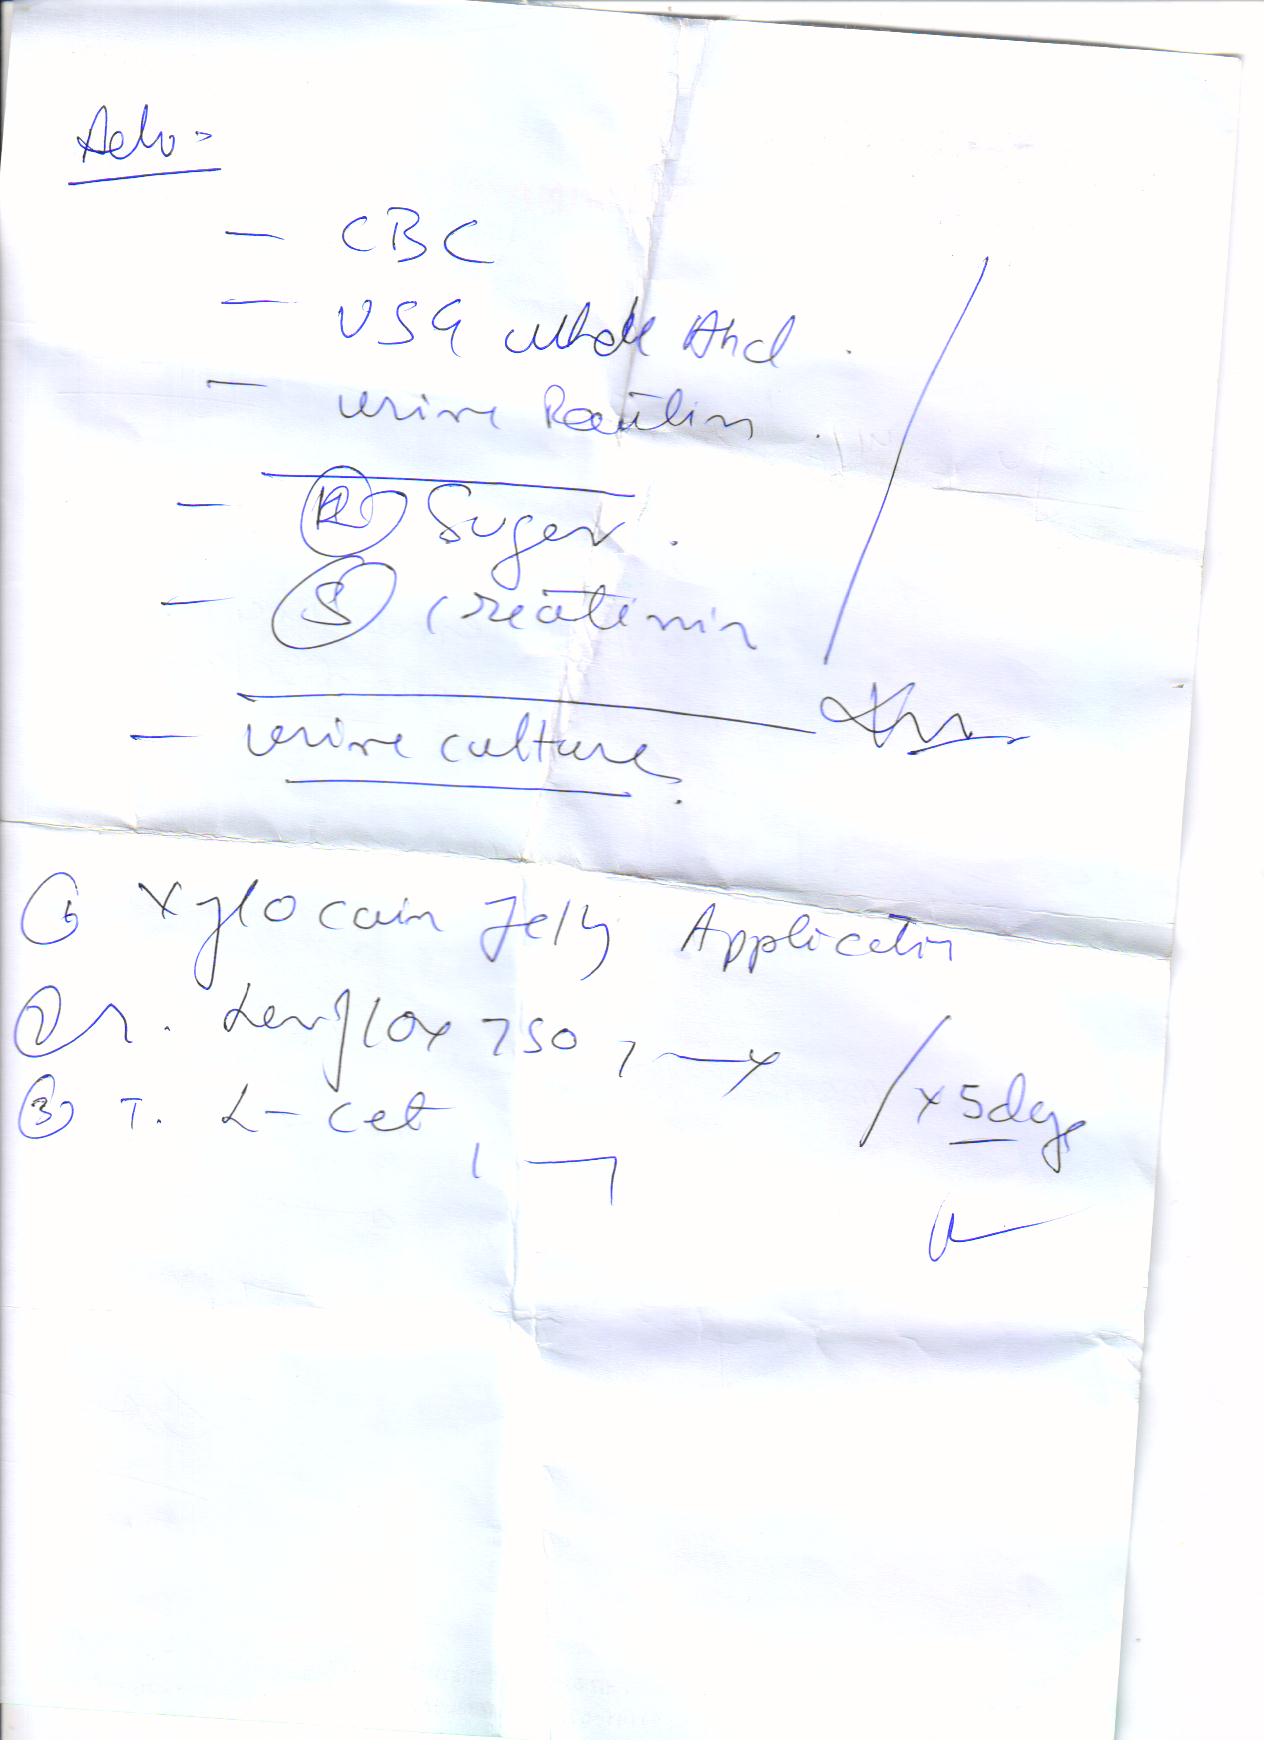 Adv:-
- CBC
- USG whole Abd.
- urine Routin.
- (R) Suger.
- (S) creatinin
- urine culture.
① Xylocain Jelly Applicatin
② T. Levflox 750, 
③ T. L-cet
x 5days